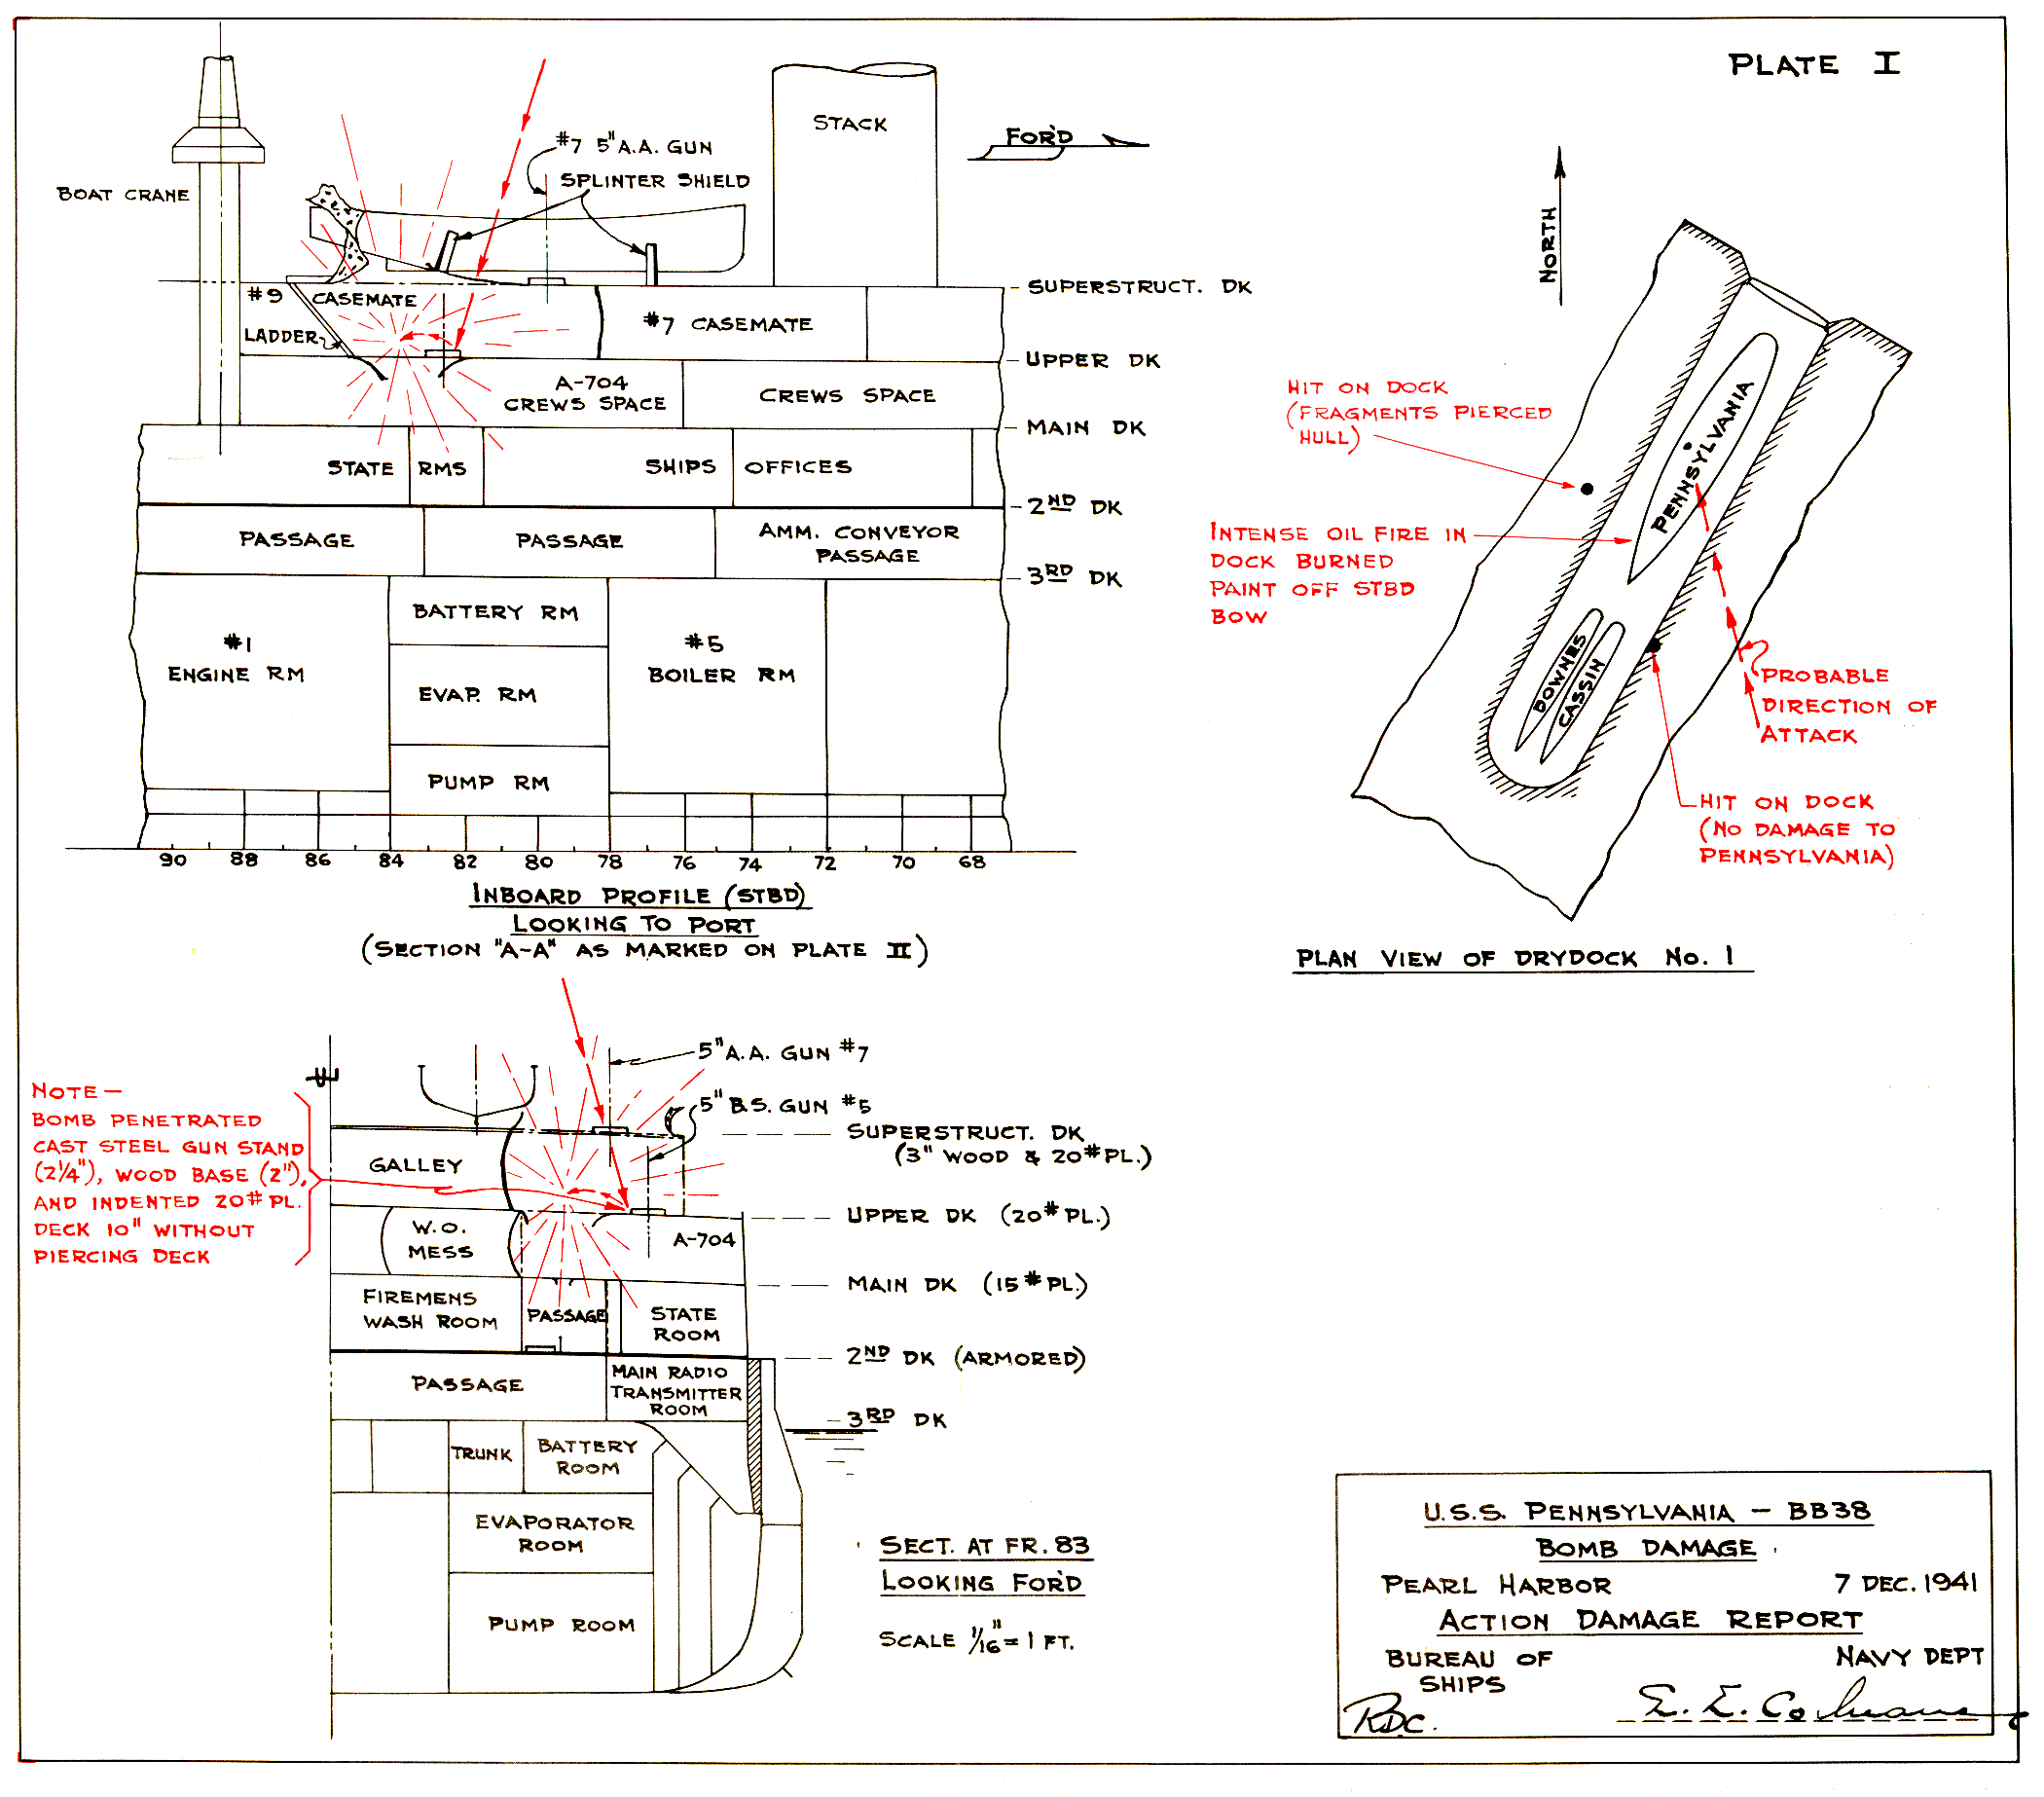 PLATE I
STACK
FOR'D
#7 5" A.A. GUN
SPLINTER SHIELD
BOAT CRANE
#9 CASEMATE
LADDER
#7 CASEMATE
SUPERSTRUCT. DK
UPPER DK
A-704
CREWS SPACE
CREWS SPACE
MAIN DK
STATE RMS
SHIPS OFFICES
2ND DK
PASSAGE
PASSAGE
AMM. CONVEYOR
PASSAGE
3RD DK
#1
ENGINE RM
BATTERY RM
EVAP. RM
PUMP RM
#5
BOILER RM
90 88 86 84 82 80 78 76 74 72 70 68
INBOARD PROFILE (STBD)
LOOKING TO PORT
(SECTION "A-A" AS MARKED ON PLATE II)
NORTH
HIT ON DOCK
(FRAGMENTS PIERCED
HULL)
INTENSE OIL FIRE IN
DOCK BURNED
PAINT OFF STBD
BOW
PENNSYLVANIA
DOWNES
CASSIN
PROBABLE
DIRECTION OF
ATTACK
HIT ON DOCK
(NO DAMAGE TO
PENNSYLVANIA)
PLAN VIEW OF DRYDOCK No. 1
NOTE —
BOMB PENETRATED
CAST STEEL GUN STAND
(2¼"), WOOD BASE (2"),
AND INDENTED 20# PL.
DECK 10" WITHOUT
PIERCING DECK
5" A.A. GUN #7
5" B.S. GUN #5
SUPERSTRUCT. DK
(3" WOOD & 20# PL.)
GALLEY
UPPER DK (20# PL.)
W.O.
MESS
A-704
MAIN DK (15# PL.)
FIREMENS
WASH ROOM
PASSAGE
STATE
ROOM
2ND DK (ARMORED)
PASSAGE
MAIN RADIO
TRANSMITTER
ROOM
3RD DK
TRUNK
BATTERY
ROOM
EVAPORATOR
ROOM
PUMP ROOM
SECT. AT FR. 83
LOOKING FOR'D
SCALE 1/16" = 1 FT.
U.S.S. PENNSYLVANIA — BB38
BOMB DAMAGE
PEARL HARBOR 7 DEC. 1941
ACTION DAMAGE REPORT
BUREAU OF
SHIPS
NAVY DEPT
RDC.
E. E. Cochrane